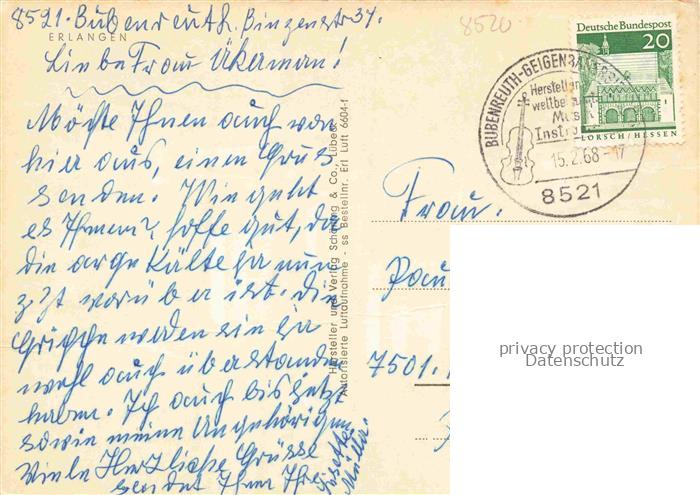 8521. Bubenreuth. Bingenstr 34.
ERLANGEN
8520
Liebe Frau Akerman!
Möchte Ihnen auch von
hier aus, einen Gruss
senden. Wie geht
es Ihnen? hoffe gut, da
die arge Kälte ja nun
z. Zt vorüber ist. die
Grippe werden sie ja
wohl auch überstanden
haben. Ich auch bis jetzt
sowie meine Angehörigen
Viele Herzliche Grüsse
sendet Ihnen Ihre
Lisette
Müller.
Hersteller und Verlag Schöning & Co., Lübeck
Autorisierte Luftaufnahme - ss Bestellnr. Erl Luft 6604-f
Deutsche Bundespost
20
LORSCH/HESSEN
BUBENREUTH-GEIGENBAU
Hersteller
weltbe
Mus
Instr
15.2.68-17
8521
Frau.
Pau
7501.
privacy protection
Datenschutz